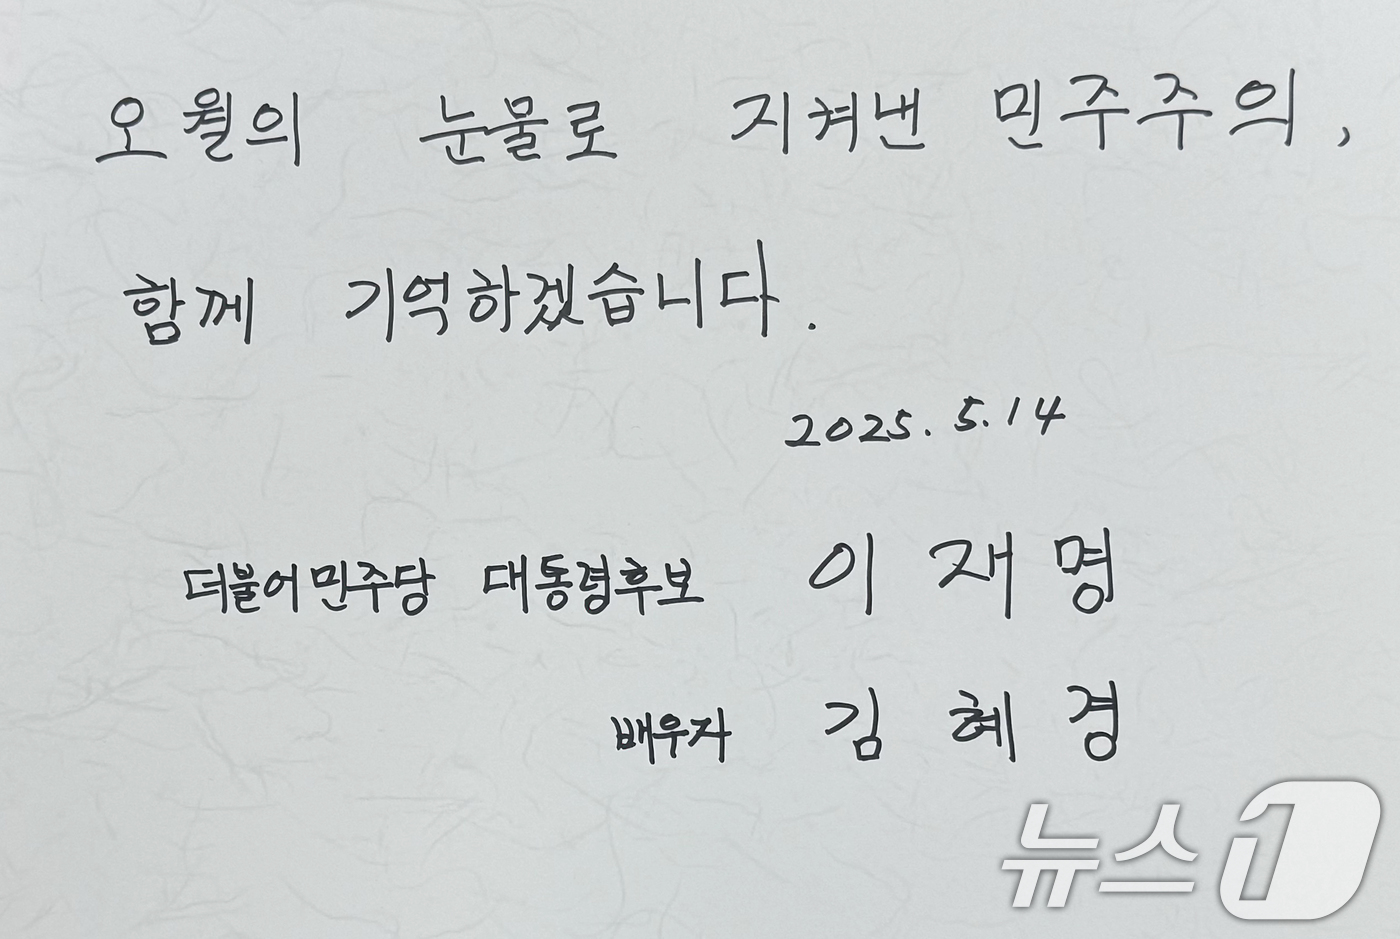 오월의 눈물로 지켜낸 민주주의,
함께 기억하겠습니다.
2025. 5. 14
더불어민주당 대통령후보 이재명
배우자 김혜경
뉴스1